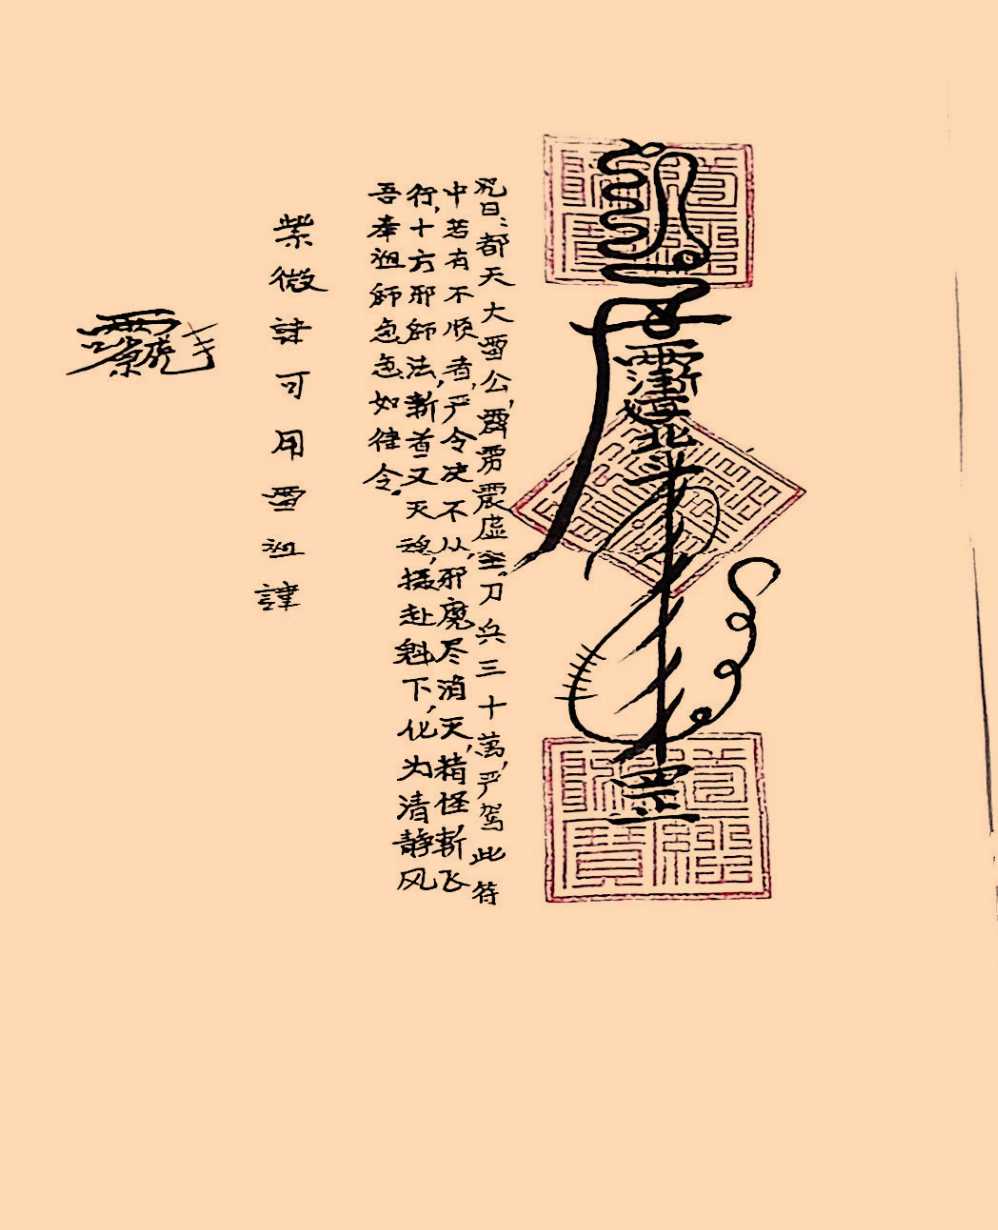 北斗
罡
咒曰：都天大雷公，霹雳震虚空。刀兵三十萬，严驾此符
中若有不顺者，严令决不从，邪魔尽消灭，精怪斩飞
行，十方邪師法，斩首又灭魂，摄赴魁下，化为清静风
吾奉祖師急急如律令。
紫微諱可用雷祖諱